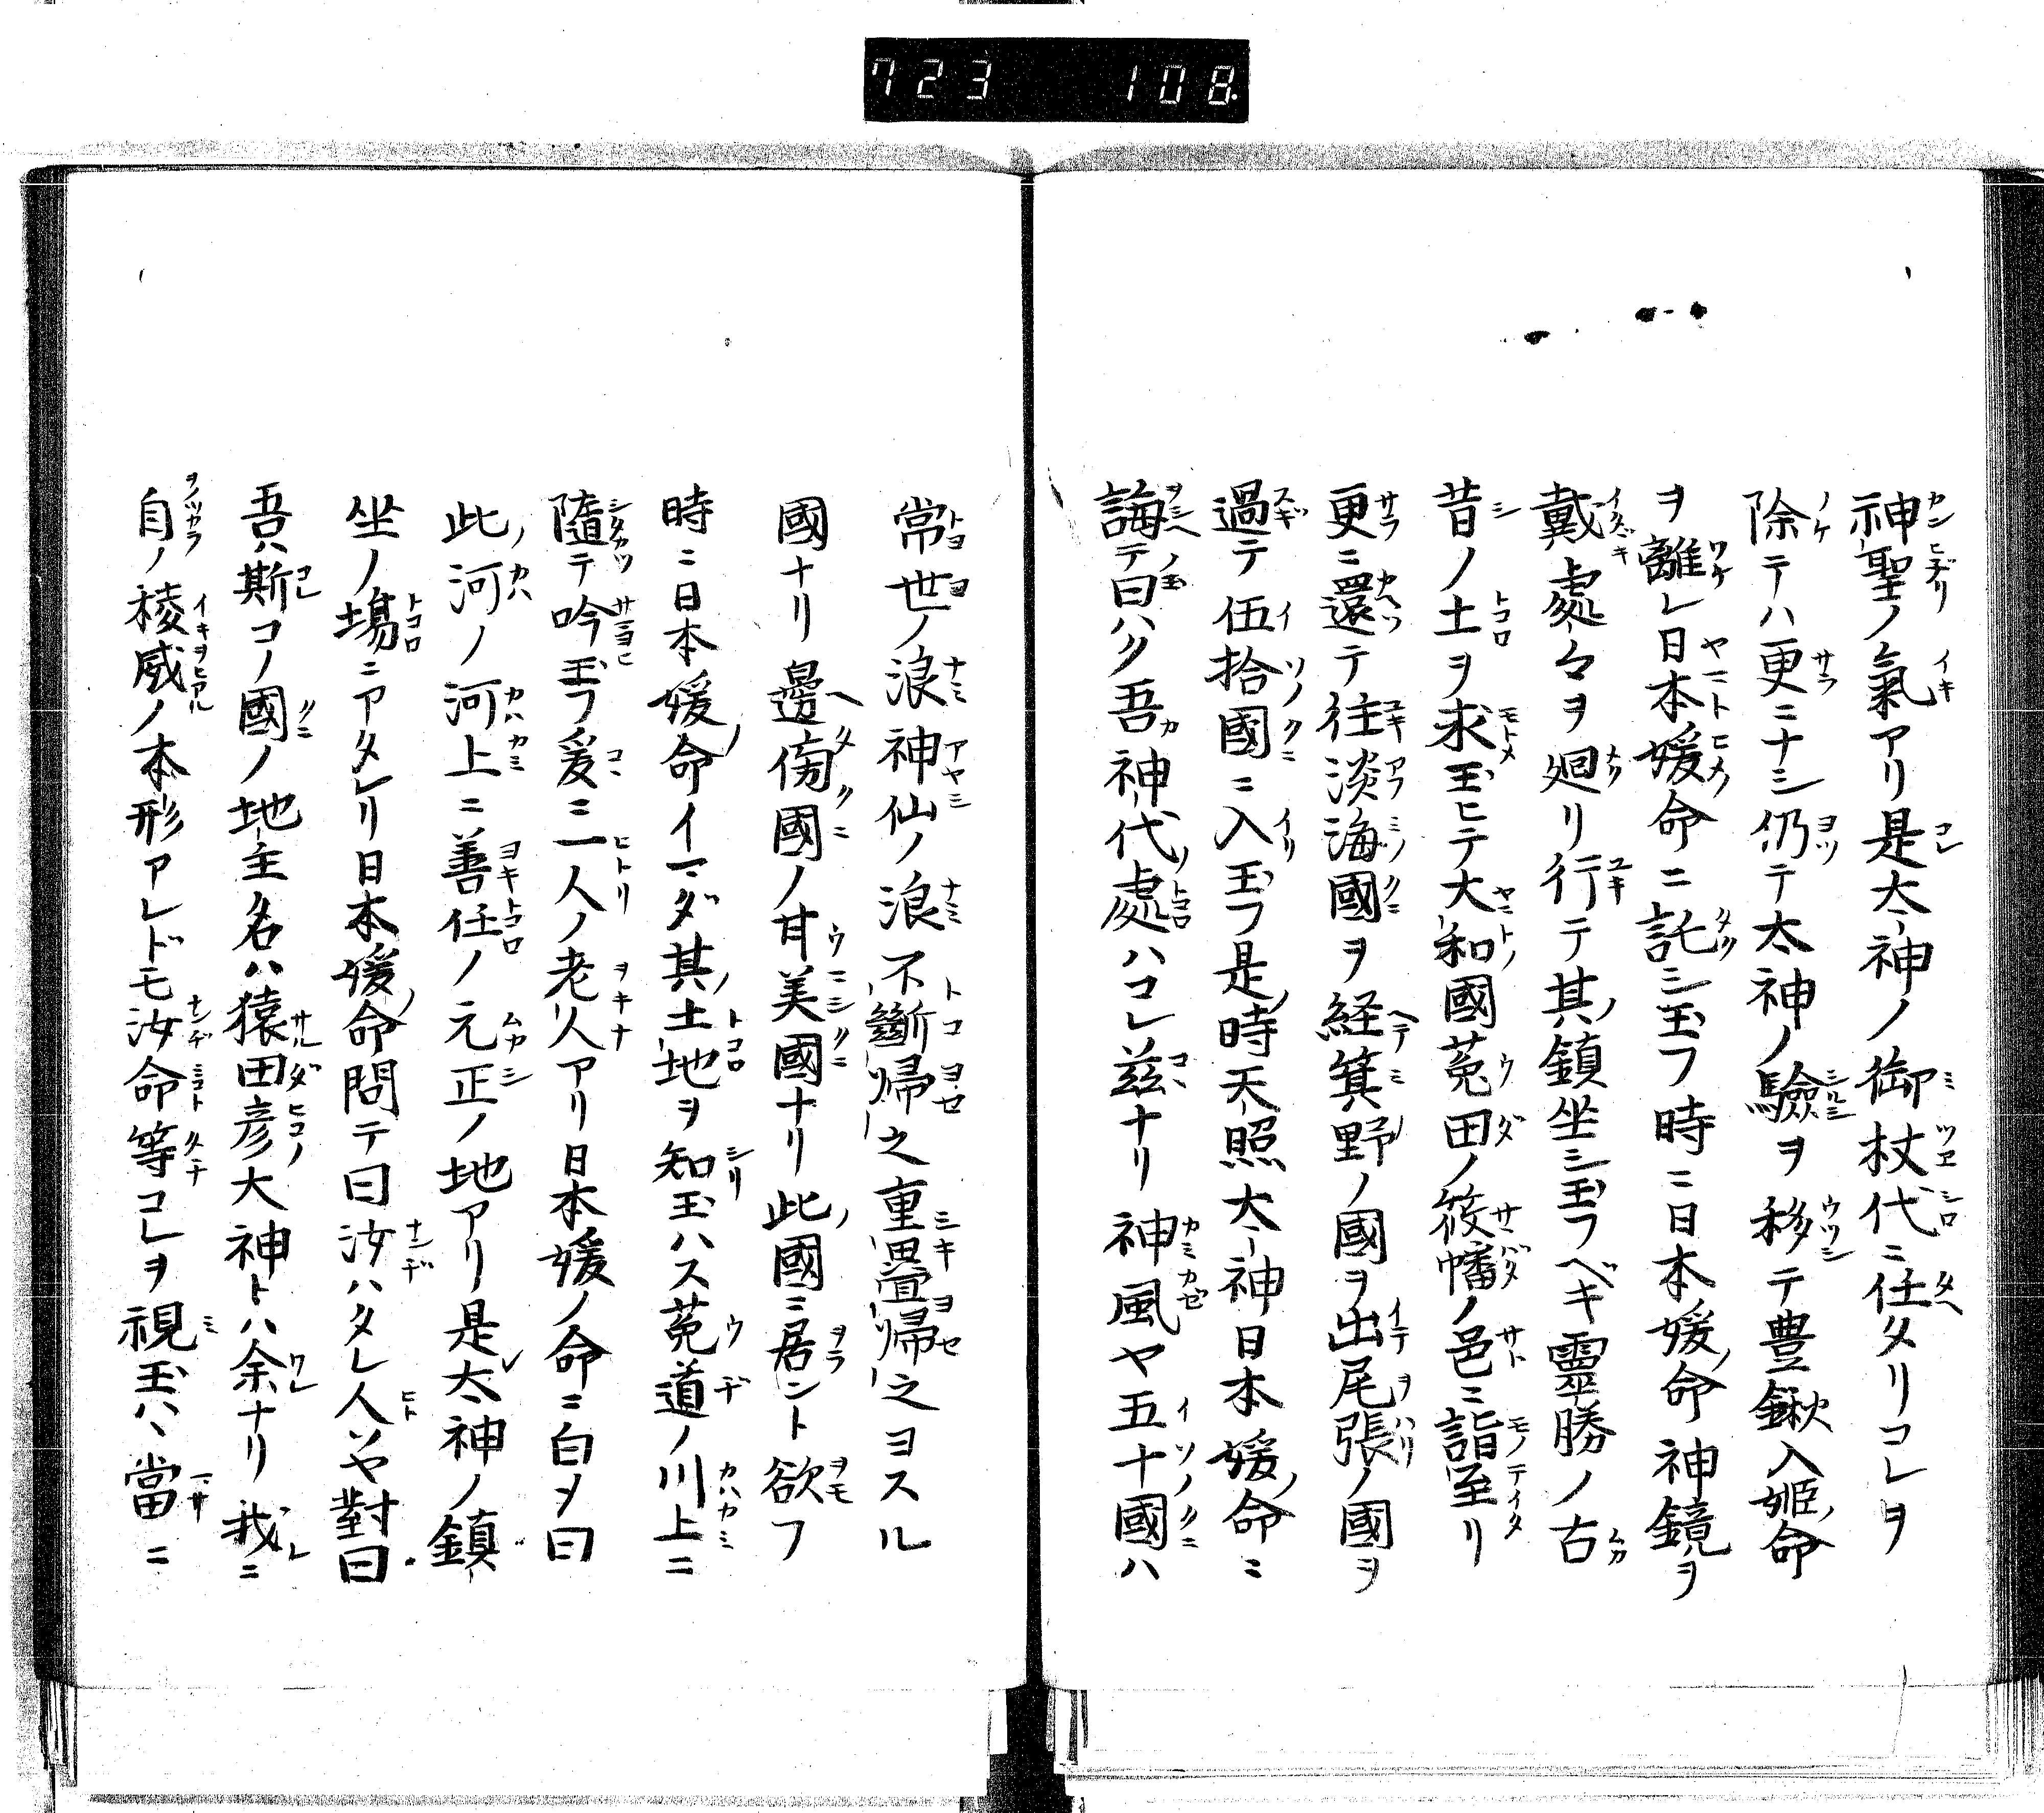 723 108.
神聖ノ氣アリ是太神ノ御杖代ニ任タリコレヲ
除テハ更ニナシ仍テ太神ノ驗ヲ移テ豊鍬入姫命
ヲ離レ日本媛命ニ託シ玉フ時ニ日本媛命神鏡ヲ
戴處々ヲ廻リ行テ其鎮坐シ玉フベキ靈勝ノ古
昔ノ土ヲ求玉ヒテ大和國菟田ノ筱幡ノ邑ニ詣至リ
更ニ還テ往淡海國ヲ経箕野ノ國ヲ出尾張ノ國ヲ
過テ伍拾國ニ入玉フ是時天照太神日本媛命ニ
誨テ曰ハク吾神代處ハコレ茲ナリ神風ヤ五十國ハ
常世ノ浪神仙ノ浪不斷帰之重疊帰之ヨスル
國ナリ邊傍國ノ甘美國ナリ此國ニ居ント欲フ
時ニ日本媛命イマダ其土地ヲ知玉ハス菟道ノ川上ニ
隨テ吟玉フ爰ニ一人ノ老人アリ日本媛ノ命ニ白ヲ曰
此河ノ河上ニ善任ノ元正ノ地アリ是太神ノ鎮
坐ノ場ニアタレリ日本媛命問テ曰汝ハタレ人ソヤ對曰
吾ハ斯コノ國ノ地主名ハ猿田彦大神トハ余ナリ我ニ
自ノ稜威ノ本形アレドモ汝命等コレヲ視玉ハヽ當ニ